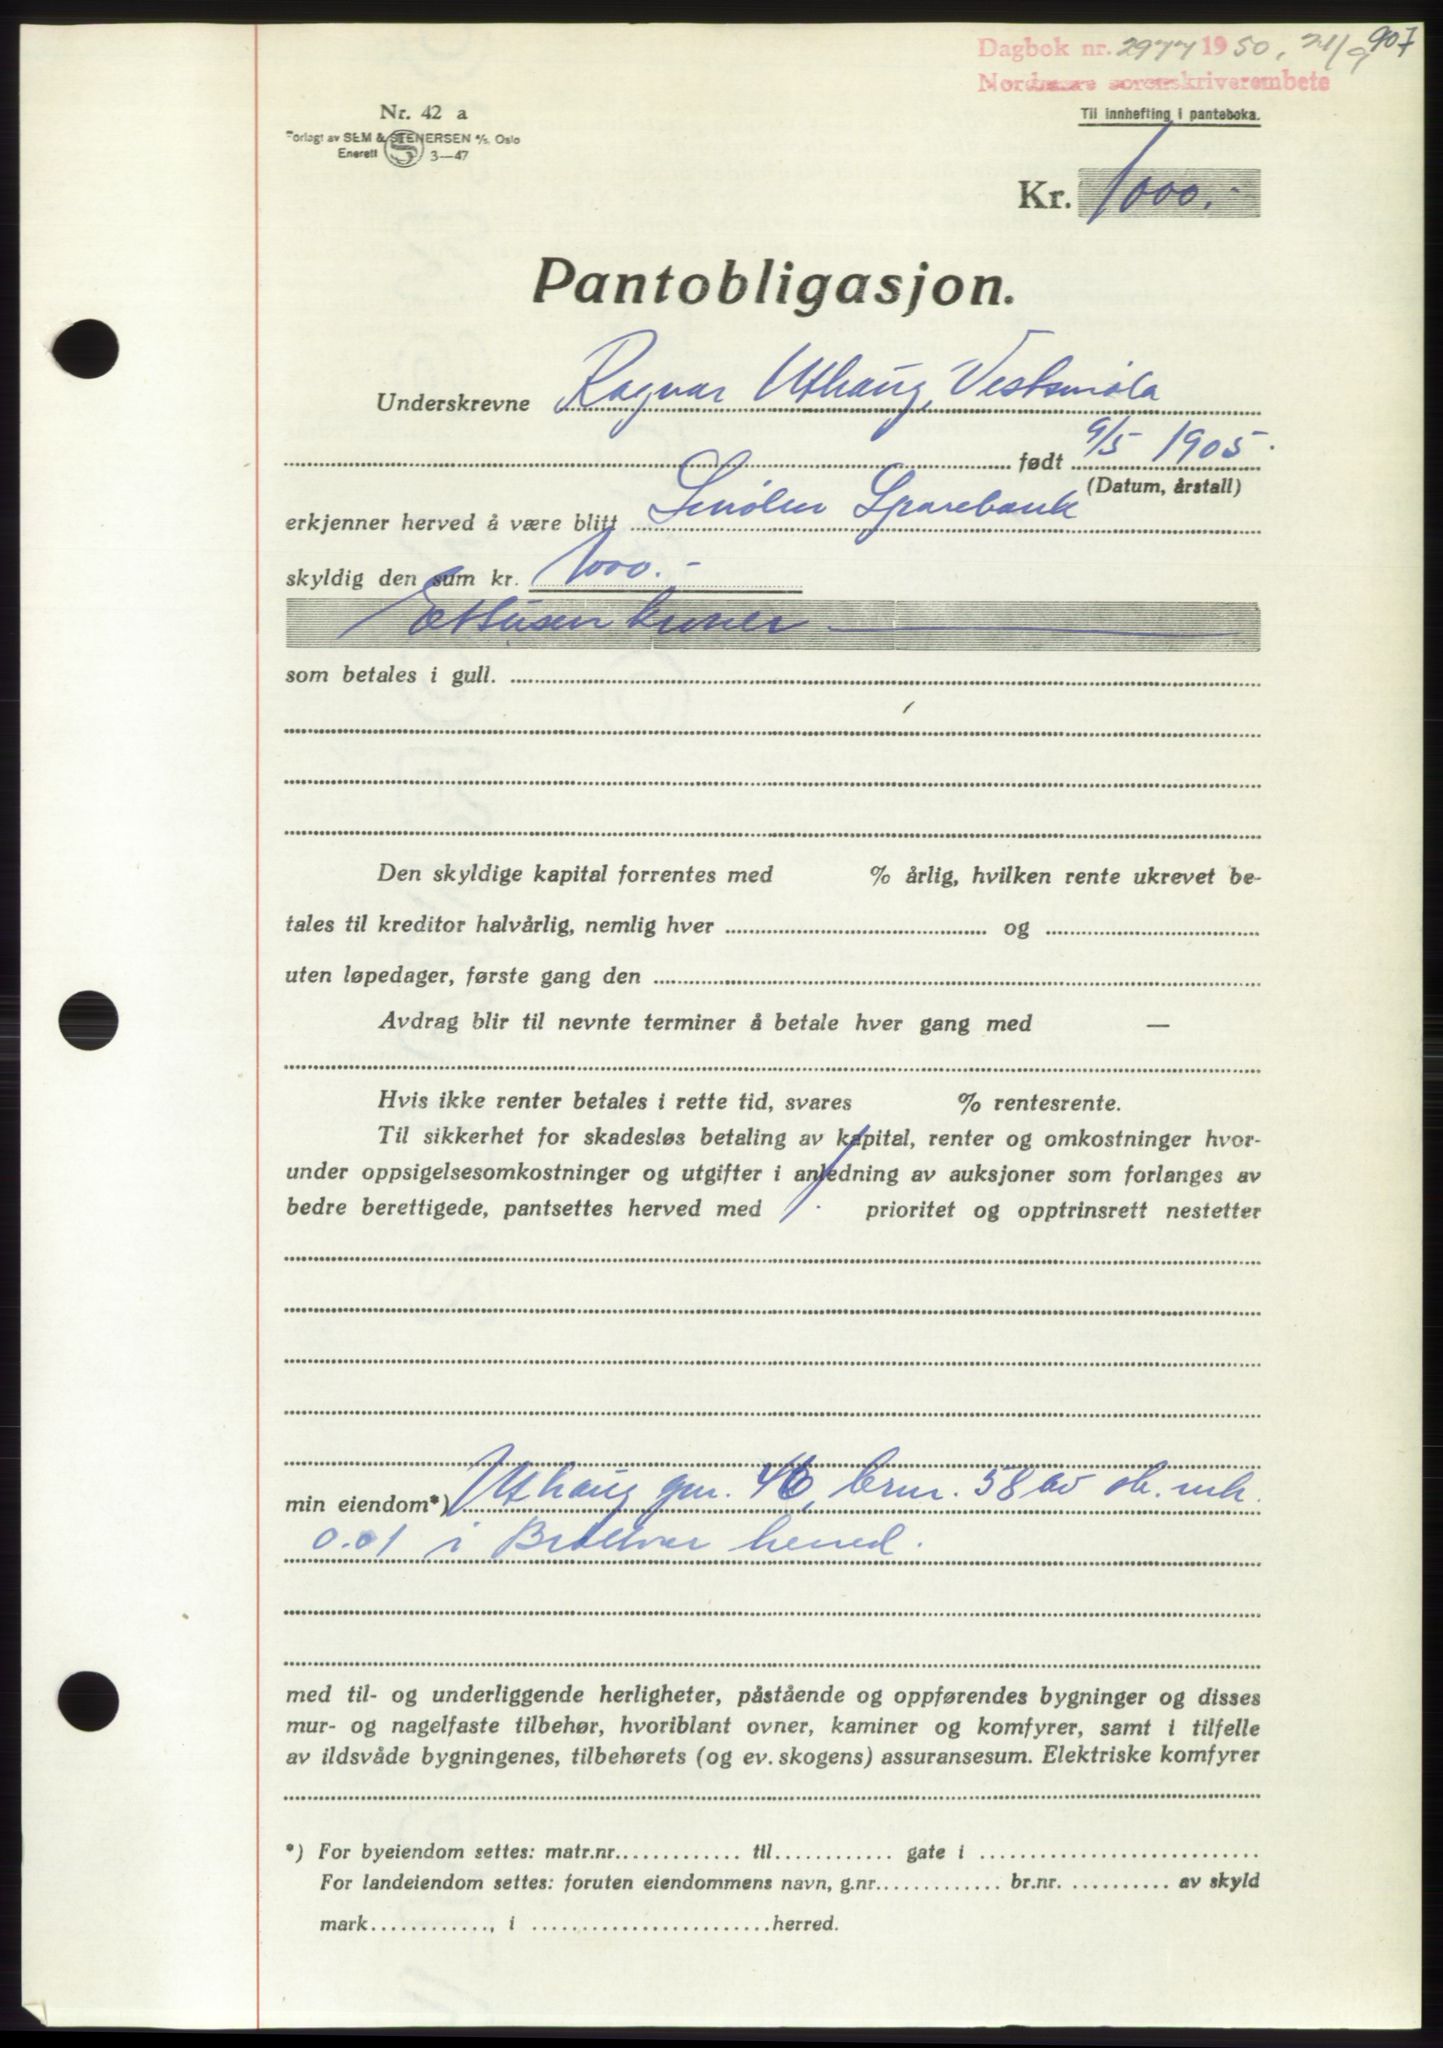 907
Dagbok nr. 2977 1950, 21/9
Nordmøre sorenskriverembete
Nr. 42 a
Til innhefting i panteboka.
Forlagt av SEM & STENERSEN A/S, Oslo
Enerett S 3—47
Kr. 1000.-
Pantobligasjon.
Underskrevne Ragnar Uthaug, Vestsmøla
født 9/5 1905.
(Datum, årstall)
erkjenner herved å være blitt Smølen Sparebank
skyldig den sum kr. 1000.-
Ettusen kroner
som betales i gull.
Den skyldige kapital forrentes med % årlig, hvilken rente ukrevet be-
tales til kreditor halvårlig, nemlig hver og
uten løpedager, første gang den
Avdrag blir til nevnte terminer å betale hver gang med —
Hvis ikke renter betales i rette tid, svares % rentesrente.
Til sikkerhet for skadesløs betaling av kapital, renter og omkostninger hvor-
under oppsigelsesomkostninger og utgifter i anledning av auksjoner som forlanges av
bedre berettigede, pantsettes herved med 1. prioritet og opptrinsrett nestetter
min eiendom*) Uthaug gnr. 46, brnr. 58 av sk. mk.
0.01 i Brattvær herred.
med til- og underliggende herligheter, påstående og oppførendes bygninger og disses
mur- og nagelfaste tilbehør, hvoriblant ovner, kaminer og komfyrer, samt i tilfelle
av ildsvåde bygningenes, tilbehørets (og ev. skogens) assuransesum. Elektriske komfyrer
*) For byeiendom settes: matr.nr. til gate i
For landeiendom settes: foruten eiendommens navn, g.nr. br.nr. av skyld
mark , i herred.